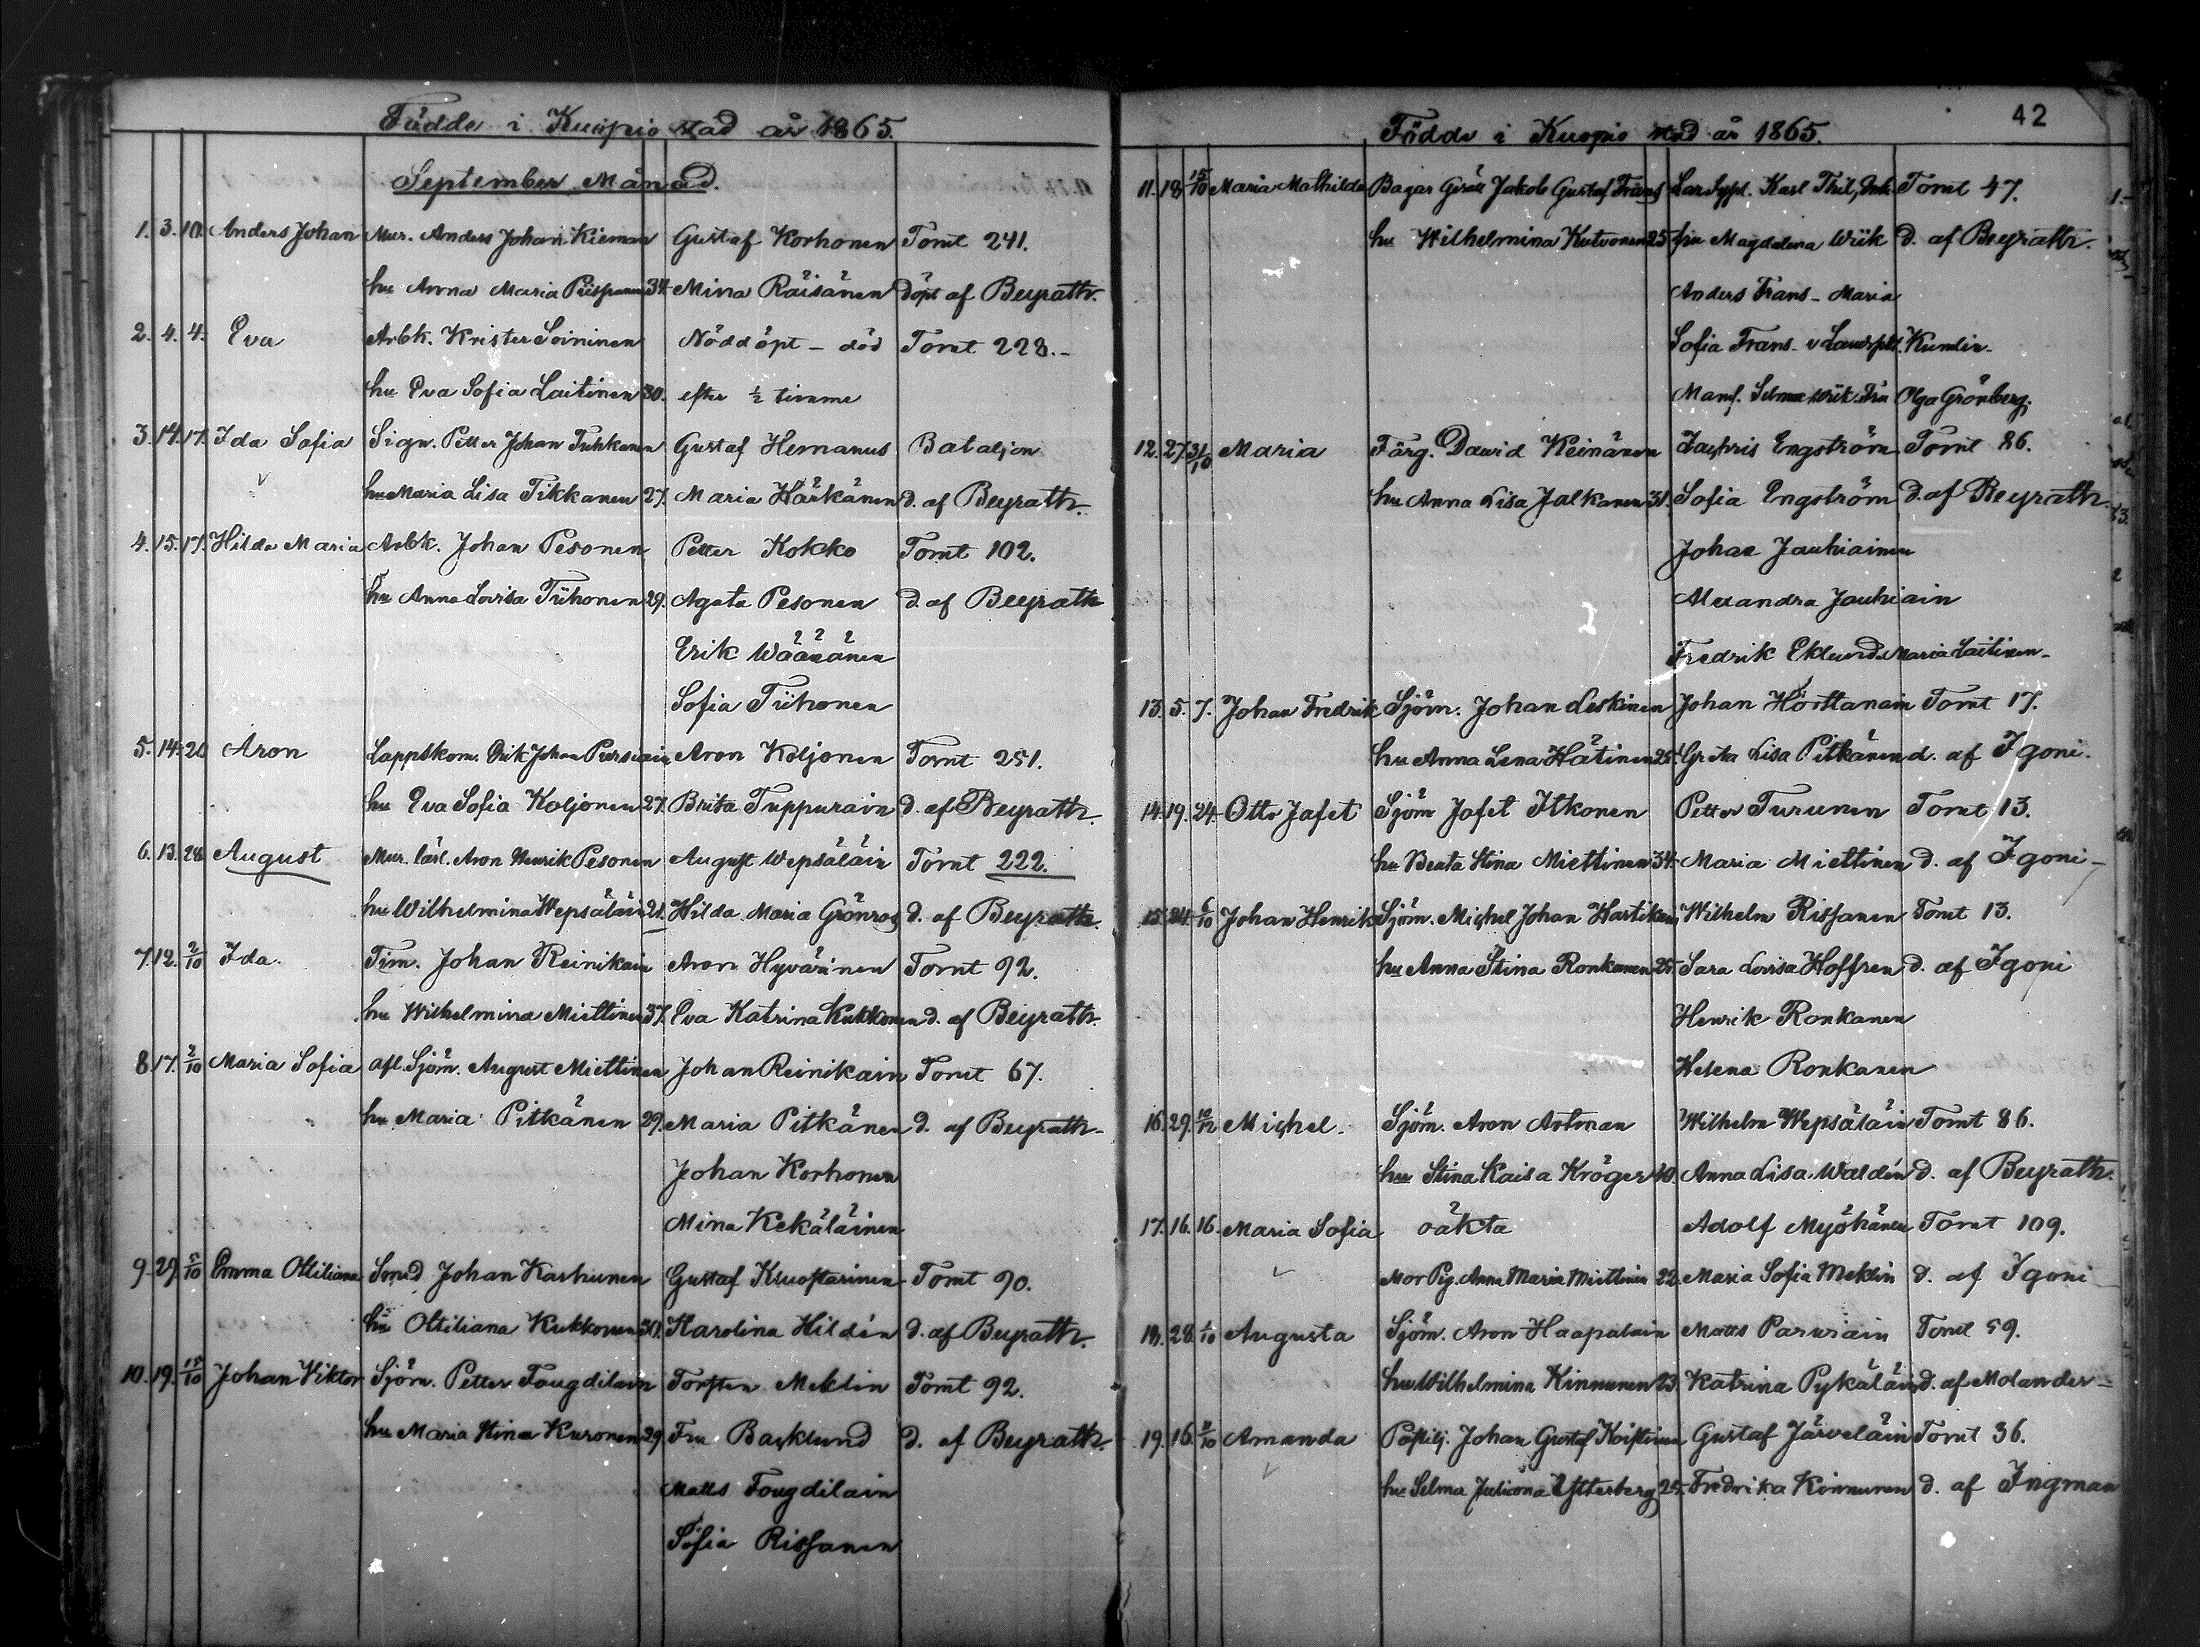 Födde i Kuopio stad år 1865.
September Månad.
1. 3. 10. Anders Johan Mur. Anders Johan Kieman Gustaf Korhonen Tomt 241.
hu Anna Maria 34. Mina Räisänen döpt af Beyrath.
2. 4. 4. Eva Arbk. Krister Soininen Nöddöpt - död Tomt 228. -
hu Eva Sofia Laitinen 30. efter ½ timme
3. 14. 17. Ida Sofia Sign. Petter Johan Tuhkanen Gustaf Hemanus Bataljon
hu Maria Lisa Tikkanen 27. Maria Kärkänen d. af Beyrath.
4. 15. 17. Hilda Maria Arbk. Johan Pesonen Petter Kokko Tomt 102.
hu Anna Lovisa Tiihonen 29. Agata Pesonen d. af Beyrath
Erik Wäänänen
Sofia Tiihonen
5. 14. 20 Aron Lappskom. Erik Johan Aron Koljonen Tomt 251.
hu Eva Sofia Koljonen 27. Brita Tuppurain d. af Beyrath.
6. 13. 28. August Mur. lärl. Aron Henrik Pesonen August Wepsäläin Tomt 222.
hu Wilhelmina Wepsäläin 21. Hilda Maria Grönroos d. af Beyrath.
7. 12. 2/10 Ida. Tim. Johan Reinikain Aron Hyvärinen Tomt 92.
hu Wilhelmina Miettinen 37. Eva Katrina Kukkonen d. af Beyrath.
8. 17. 2/10 Maria Sofia afl. Sjöm. August Miettinen Johan Reinikain Tomt 67.
hu Maria Pitkänen 29. Maria Pitkänen d. af Beyrath -
Johan Korhonen
Mina Kekäläinen
9. 29. 5/10 Emma Ottiliana Smed Johan Karhunen Gustaf Tomt 90.
hu Ottiliana Kukkonen 30. Karolina Hildén d. af Beyrath.
10. 19. 15/10 Johan Viktor Sjöm. Petter Fougdilain Torsten Meklin Tomt 92.
hu Maria Stina Kuronen 29. Fru Backlund d. af Beyrath.
Matts Fougdilain
Sofia Rissanen
42
Födde i Kuopio stad år 1865.
11. 18. 15/10 Maria Mathilda Bagar Gesäll Jakob Gustaf Frans Karl Tomt 47.
hu Wilhelmina Kutvonen 25. fru Magdalena Wiik d. af Beyrath.
Anders Frans - Maria
Sofia Frans - Kundin -
Mams. Selma Wiik Fru Olga Grönberg.
12. 27. 31/10 Maria Färg. David Keinänen Zachris Engström Tomt 86.
hu Anna Lisa Jalkanen 31. Sofia Engström d. af Beyrath.
Johan Jauhiainen
Alexandra Jauhiain
Fredrik Eklund Maria Laitinen -
13. 5. 7. Johan Fredrik Sjöm. Johan Leskinen Johan Höttanain Tomt 17.
hu Anna Lena Hätinen 25. Greta Lisa Pitkänen d. af Igoni.
14. 19. 24. Otto Jafet Sjöm Jafet Itkonen Petter Turunen Tomt 13.
hu Beata Stina Miettinen 34. Maria Miettinen d. af Igoni -
15. 24. 6/10 Johan Henrik Sjöm. Michel Johan Hartikain Wilhelm Rissanen Tomt 13.
hu Anna Stina Ronkanen 25. Sara Lovisa Hoffren d. af Igoni
Henrik Ronkanen
Helena Ronkanen
16. 29. Michel. Sjöm. Aron Artman Wilhelm Wepsäläin Tomt 86.
hu Stina Kaisa Kröger 40. Anna Lisa Waldén d. af Beyrath.
17. 16. 16. Maria Sofia oäkta Adolf Myöhänen Tomt 109.
Mor Pig. Anna Maria Miettinen 22. Maria Sofia Meklin d. af Igoni
18. 28. 1/10 Augusta Sjöm. Aron Haapalain Matts Parviain Tomt 59.
hu Wilhelmina Kinnunen 23. Katrina Pykäläin d. af Molander -
19. 16. Amanda Postilj. Johan Gustaf Koistinen Gustaf Järveläin Tomt 36.
hu Selma Juliana Ästerberg 25. Fredrika Kinnunen d. af Ingman